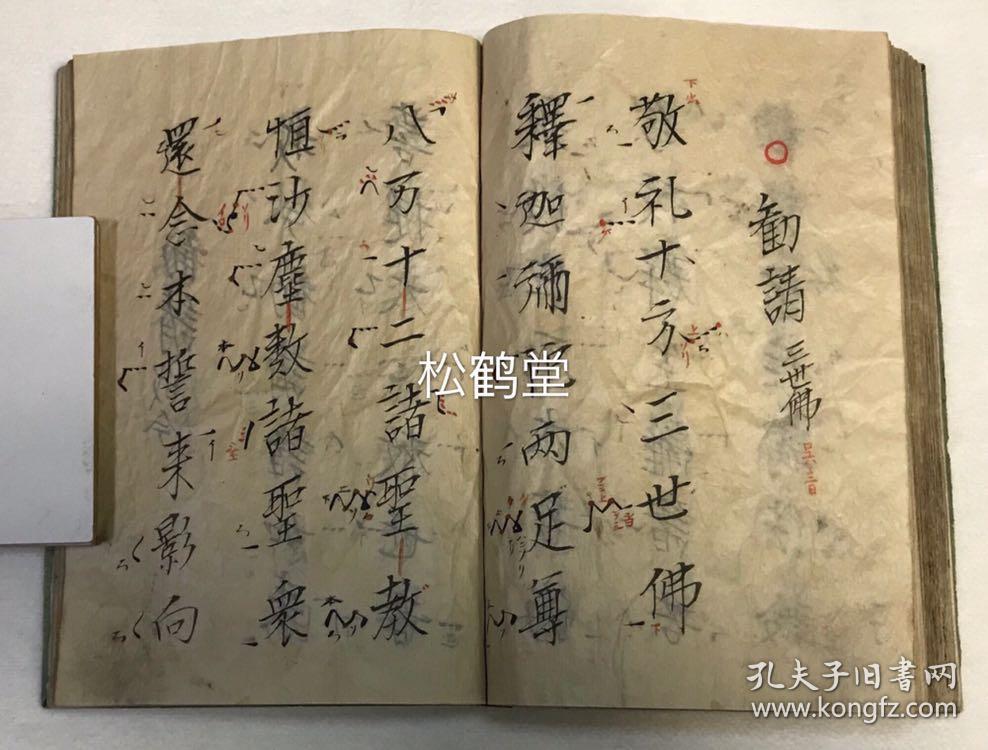 勸請 三世佛
敬礼十方三世佛
釋迦彌陀両足尊
八万十二諸聖教
恒沙塵数諸聖衆
還念本誓来影向
松鹤堂
孔夫子旧书网
www.kongfz.com